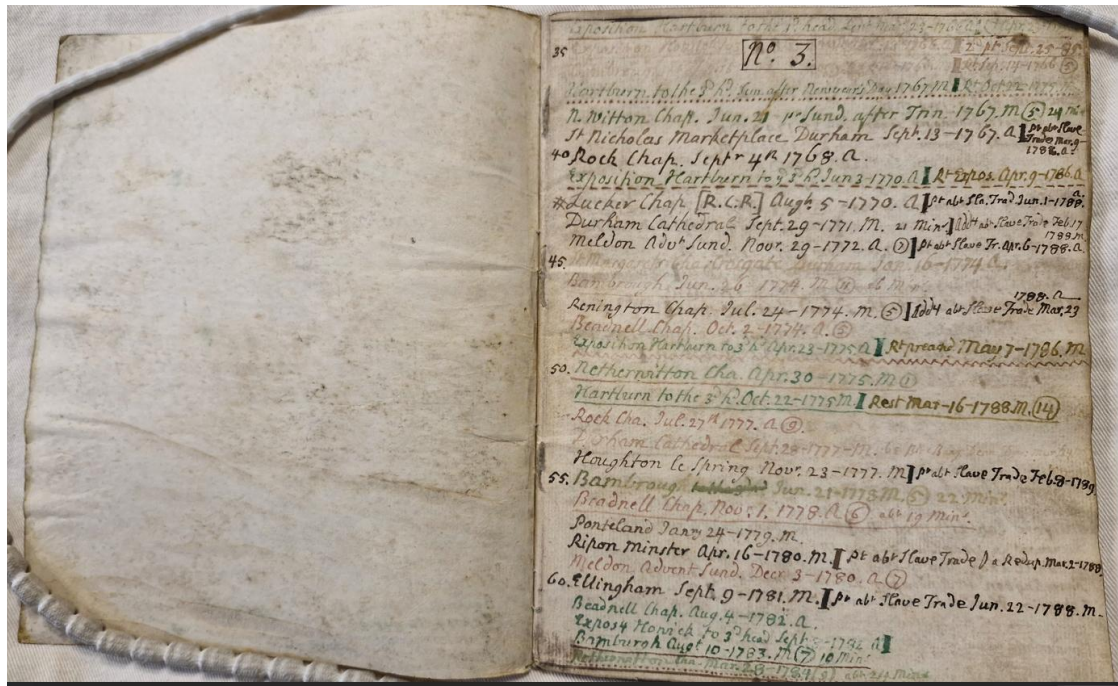 Exposition Hartburn to the head 23-1766
35 Exposition 2d pt Sept. 25-85
No. 3.
Rt Sep. 14-1766 (5)
Hartburn to the 3d h. Sun. after Newyears Day 1767. M Rt Oct 22
N. Witton Chap. Jun. 21 1st Sund. after Trin. 1767. M (5) 24 min
St Nicholas Marketplace Durham Sept. 13-1767. a Pt abt Slave Trade Mar. 9 1788. a.
40 Rock Chap. Septr 4th 1768. a.
Exposition Hartburn to ye 3d h. Jun 3-1770. a Rt Expos. Apr. 9-1786. a
Lucker Chap [R.C.R.] Augt. 5-1770. a Pt abt Sla. Trad Jun. 1-1788. a.
Durham Cathedral Sept. 29-1771. M. 21 Mins Addd abt Slave Trade Feb 17 1788. M
Meldon Advt Sund. Novr. 29-1772. a. (7) Pt abt Slave Tr. Apr. 6-1788. a
45. St Margaret's Durham Jan. 16-1774 a.
Bambrough Jun. 26 1774. M 26 Min
Renington Chap. Jul. 24-1774. M. (5) Addd abt Slave Trade Mar. 23 1788. a
Beadnell Chap. Oct. 2-1774. a. (5)
Exposition Hartburn to 3d h. Apr. 23-1775 a Rt preachd May 7-1786. M
50. Netherwitton Cha. Apr. 30-1775. M
Hartburn to the 3d h. Oct. 22-1775 M Rest Mar-16-1788. M. (14)
Rock Cha. Jul. 27th 1777. a
Durham Cathedral Sept. 28-1777-M.
Houghton le Spring Novr. 23-1777. M Pt abt Slave Trade Feb. 8-1789
55. Bambrough Jun. 21-1778 M. (5) 22 Mins.
Beadnell Chap. Nov. 1. 1778. a (6) abt 19 Mins.
Ponteland Jany 24-1779. M.
Ripon Minster Apr. 16-1780. M. Pt abt Slave Trade Mar. 2-1788
Meldon Advent Sund. Decr. 3-1780. a (7)
60. Ellingham Sept. 9-1781. M. Pt abt Slave Trade Jun. 22-1788. M.
Beadnell Chap. Aug. 4-1782. a.
Expos Howick to 3d head Sept. a
Bamburgh Augt 10-1783. M (7) 19 Mins
Netherwitton Cha. Mar. 28-1784 abt 24 Mins